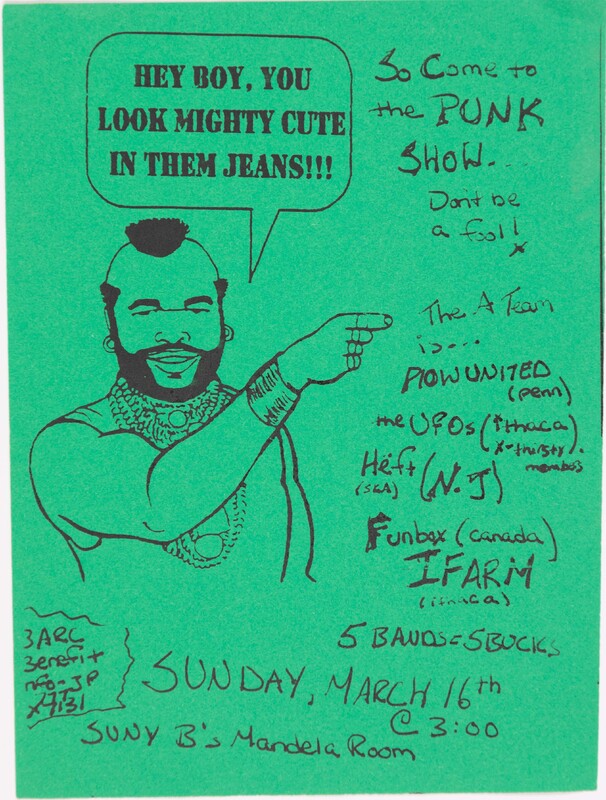 HEY BOY, YOU
LOOK MIGHTY CUTE
IN THEM JEANS!!!
So Come to
the PUNK
SHOW...
Don't be
a fool!
The A Team
is...
PLOW UNITED
(penn)
the UFOs (ithaca)
x-thirsty
members
Hëft (N.J)
(SKA)
Funbox (canada)
I FARM
(ithaca)
5 BANDS = 5 BUCKS
3ARC
Benefit
nfo-JP
x7131
SUNDAY, MARCH 16th
@ 3:00
SUNY B's Mandela Room